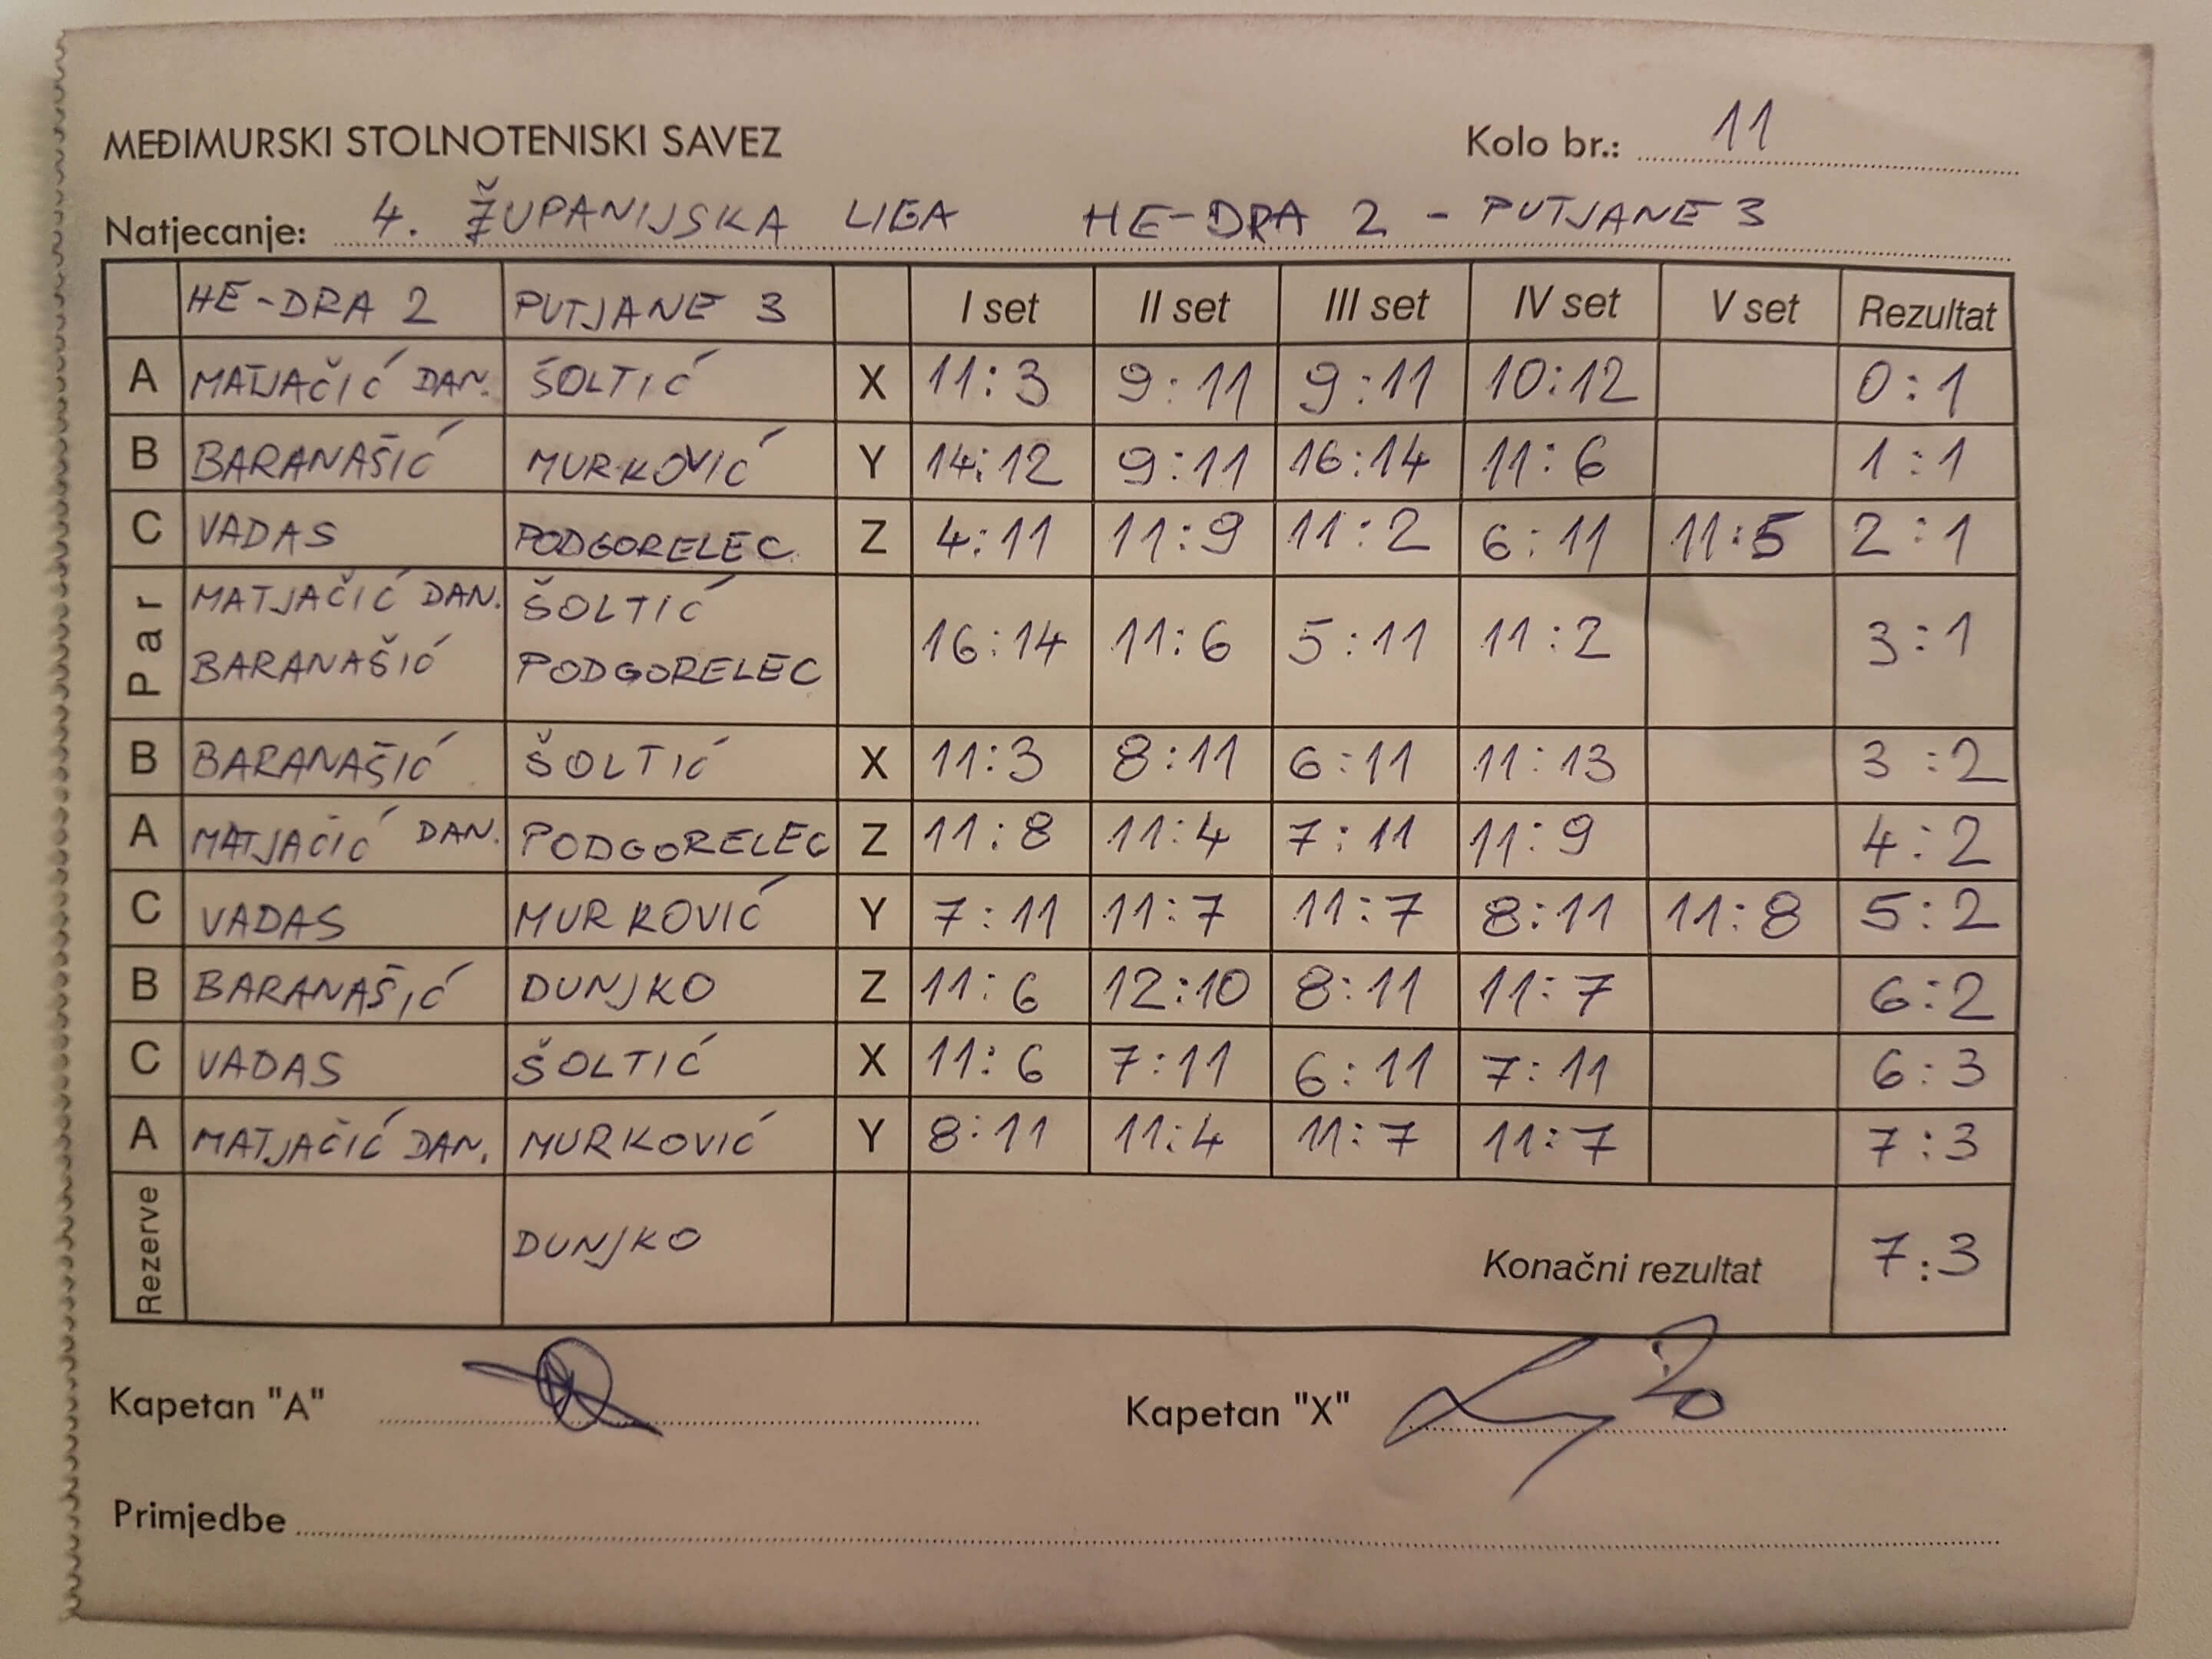 MEĐIMURSKI STOLNOTENISKI SAVEZ Kolo br.: 11
Natjecanje: 4. ŽUPANIJSKA LIGA HE-DRA 2 - PUTJANE 3
HE-DRA 2 PUTJANE 3 I set II set III set IV set V set Rezultat
A MATJAČIĆ DAN. ŠOLTIĆ X 11:3 9:11 9:11 10:12 0:1
B BARANAŠIĆ MURKOVIĆ Y 14:12 9:11 16:14 11:6 1:1
C VADAS PODGORELEC Z 4:11 11:9 11:2 6:11 11:5 2:1
Par MATJAČIĆ DAN. ŠOLTIĆ
BARANAŠIĆ PODGORELEC 16:14 11:6 5:11 11:2 3:1
B BARANAŠIĆ ŠOLTIĆ X 11:3 8:11 6:11 11:13 3:2
A MATJAČIĆ DAN. PODGORELEC Z 11:8 11:4 7:11 11:9 4:2
C VADAS MURKOVIĆ Y 7:11 11:7 11:7 8:11 11:8 5:2
B BARANAŠIĆ DUNJKO Z 11:6 12:10 8:11 11:7 6:2
C VADAS ŠOLTIĆ X 11:6 7:11 6:11 7:11 6:3
A MATJAČIĆ DAN. MURKOVIĆ Y 8:11 11:4 11:7 11:7 7:3
Rezerve DUNJKO Konačni rezultat 7:3
Kapetan "A" Kapetan "X"
Primjedbe